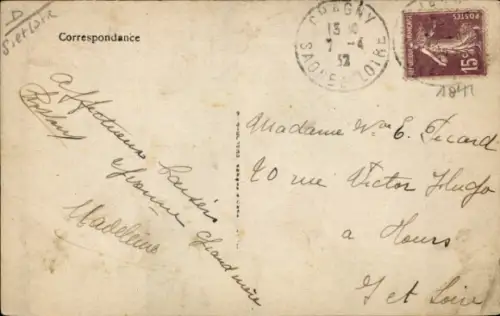 D
S. et Loire
Correspondance
CORGNY
13
7 - 4
32
SAONE-&-LOIRE
POSTES
15c
1841
Affectueux baisers
Roland
Yvonne Grand mère
Madeleine
Madame Vve E. Picard
20 rue Victor Hugo
à Tours
I et Loire